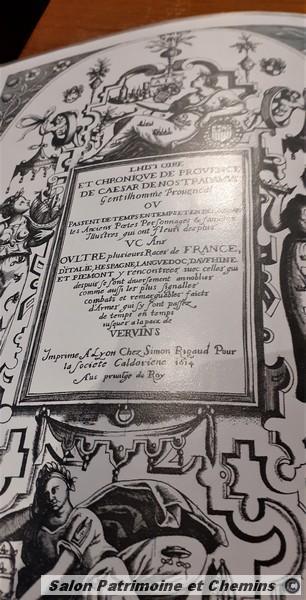 L'HISTOIRE
ET CHRONIQVE DE PROVENCE
DE CAESAR DE NOSTRADAMVS
Gentilhomme Provencal
OV
PASSENT DE TEMPS EN TEMPS ET EN
les Anciens Poetes Personnages & familles
Illustres qui ont Fleuri despuis
VC Ans
OVLTRE plusieurs Races de FRANCE,
D'ITALIE, HESPAGNE, LANGVEDOC, DAVPHINE
ET PIEMONT y rencontrees avec celles qui
despuis se sont diversement annoblies
comme aussi les plus signallés
combats et remarquables faicts
d'Armes qui s'y sont passez
de temps en temps
iusques a la paix de
VERVINS
Imprimé A Lyon Chez Simon Rigaud Pour
la societe Caldoriene 1614
Aus privilge du Roy
Salon Patrimoine et Chemins ©